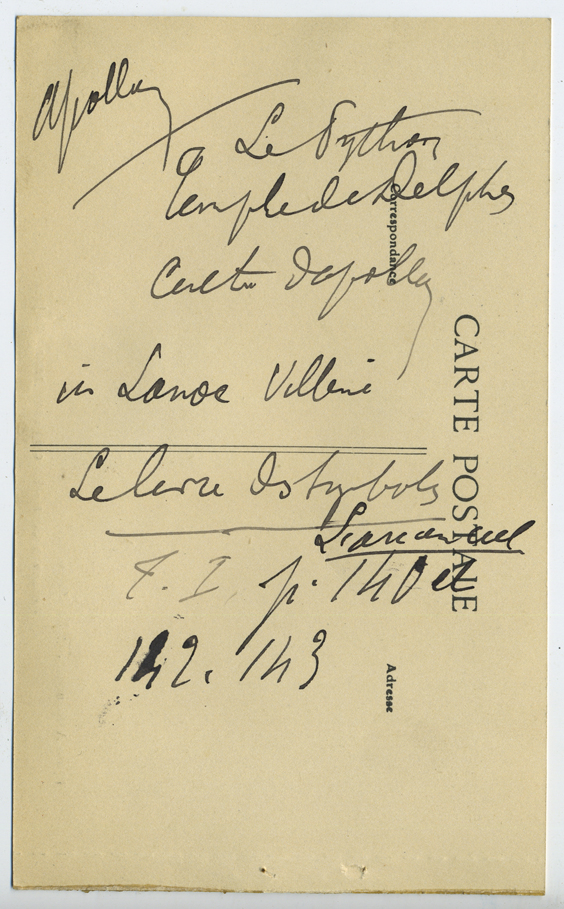 Apollon
Le Python
Temple de Delphes
Culte d'Apollon
in Lanoe Villène
Le Livre des Symboles
T. I. p. 140 et
142. 143
Correspondance
CARTE POSTALE
Adresse